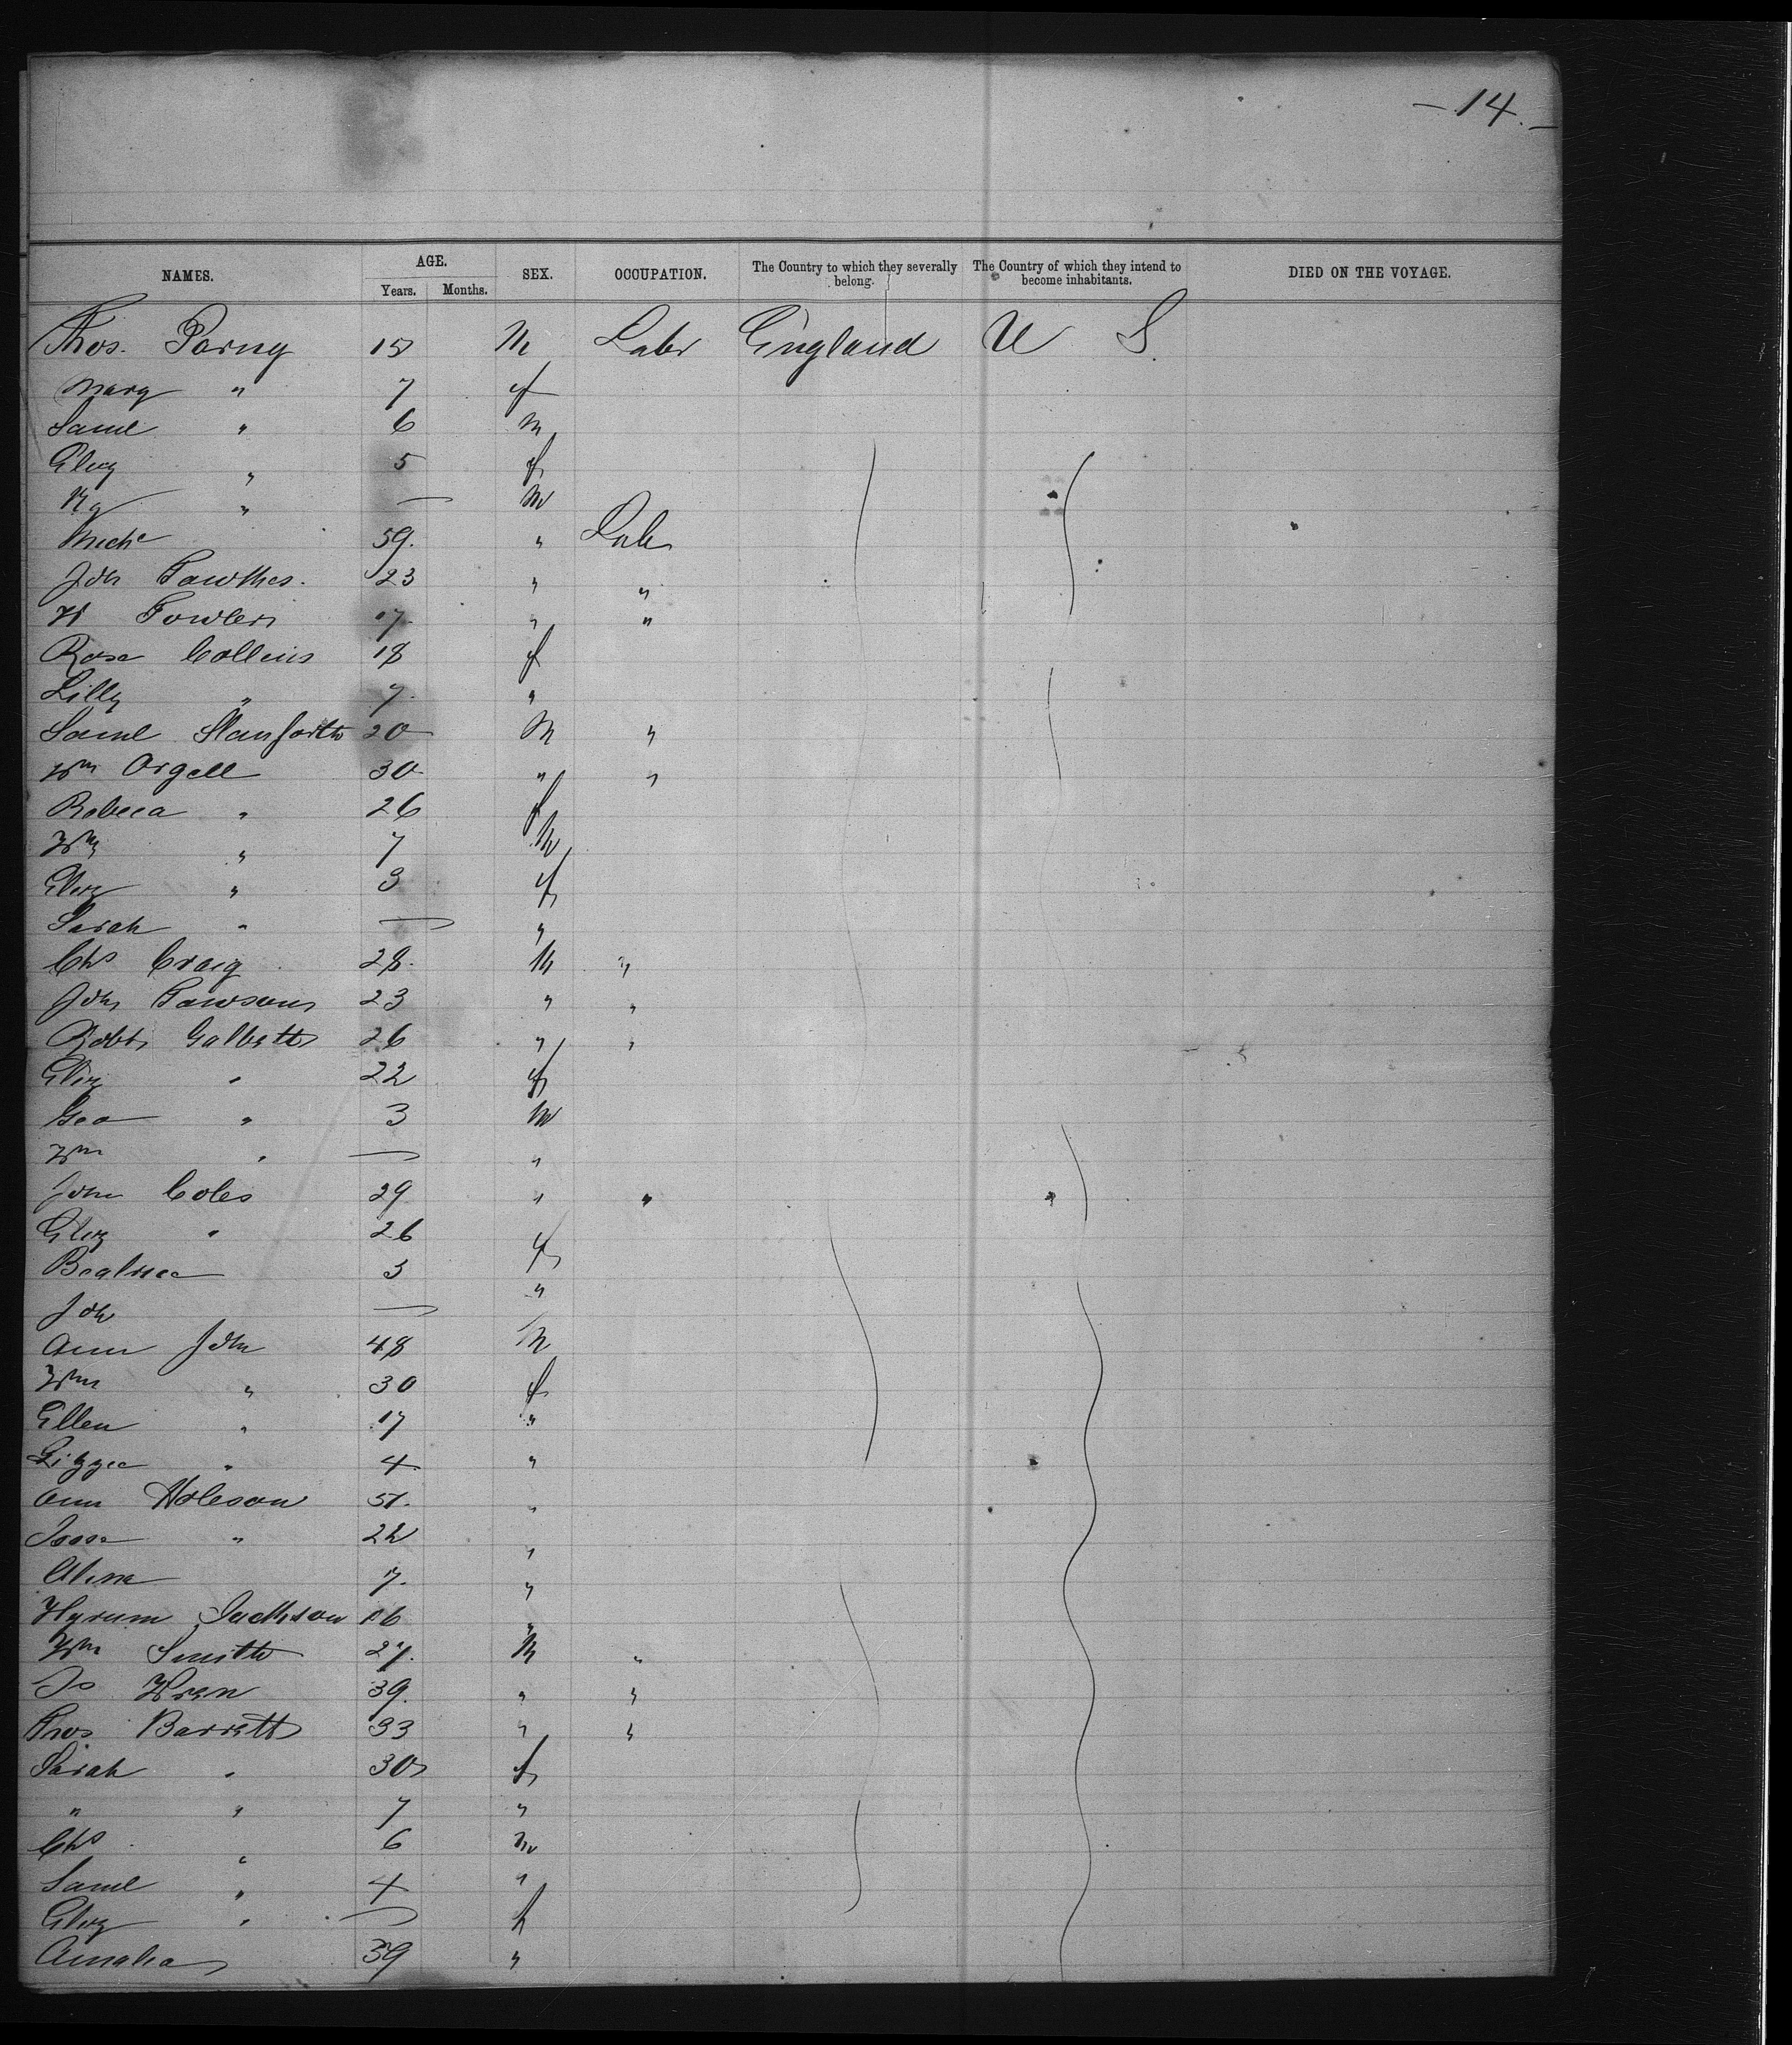 - 14. -
NAMES. AGE. Years. Months. SEX. OCCUPATION. The Country to which they severally belong. The Country of which they intend to become inhabitants. DIED ON THE VOYAGE.
Thos. 15 M Labr England U S.
Mary " 7 f
Saml " 6 m
Eliz " 5 f
" — M
59. " Lab
JOh 23 " "
H Fowler 17 " "
Rose Collins 18 f
Lilly " 7. "
Saml Stanforth 20 M "
Wm Orgell 30 " "
Rebeca " 26 f
Wm " 7 M
Eliz " 3 f
Sarah " — "
Chs Craig 28. M "
Jon 23 " "
Robt 26 " "
Eliz " 22 f
Geo " 3 M
Wm " — "
John Coles 29 " "
Eliz " 26 f
3 "
Joh —
Ann John 48 M
Wm " 30 f
Ellen " 17 "
Lizzee " 4 "
Ann 51. "
" 22 "
7. "
Hyrum Jackson 16 "
Wm Smith 27. M "
Jo Wren 39. " "
Thos Barrett 33 " "
Sarah " 30 f
" " 7 "
Chs " 6 m
Saml " 4 "
Eliz " — f
Amalia 39 "